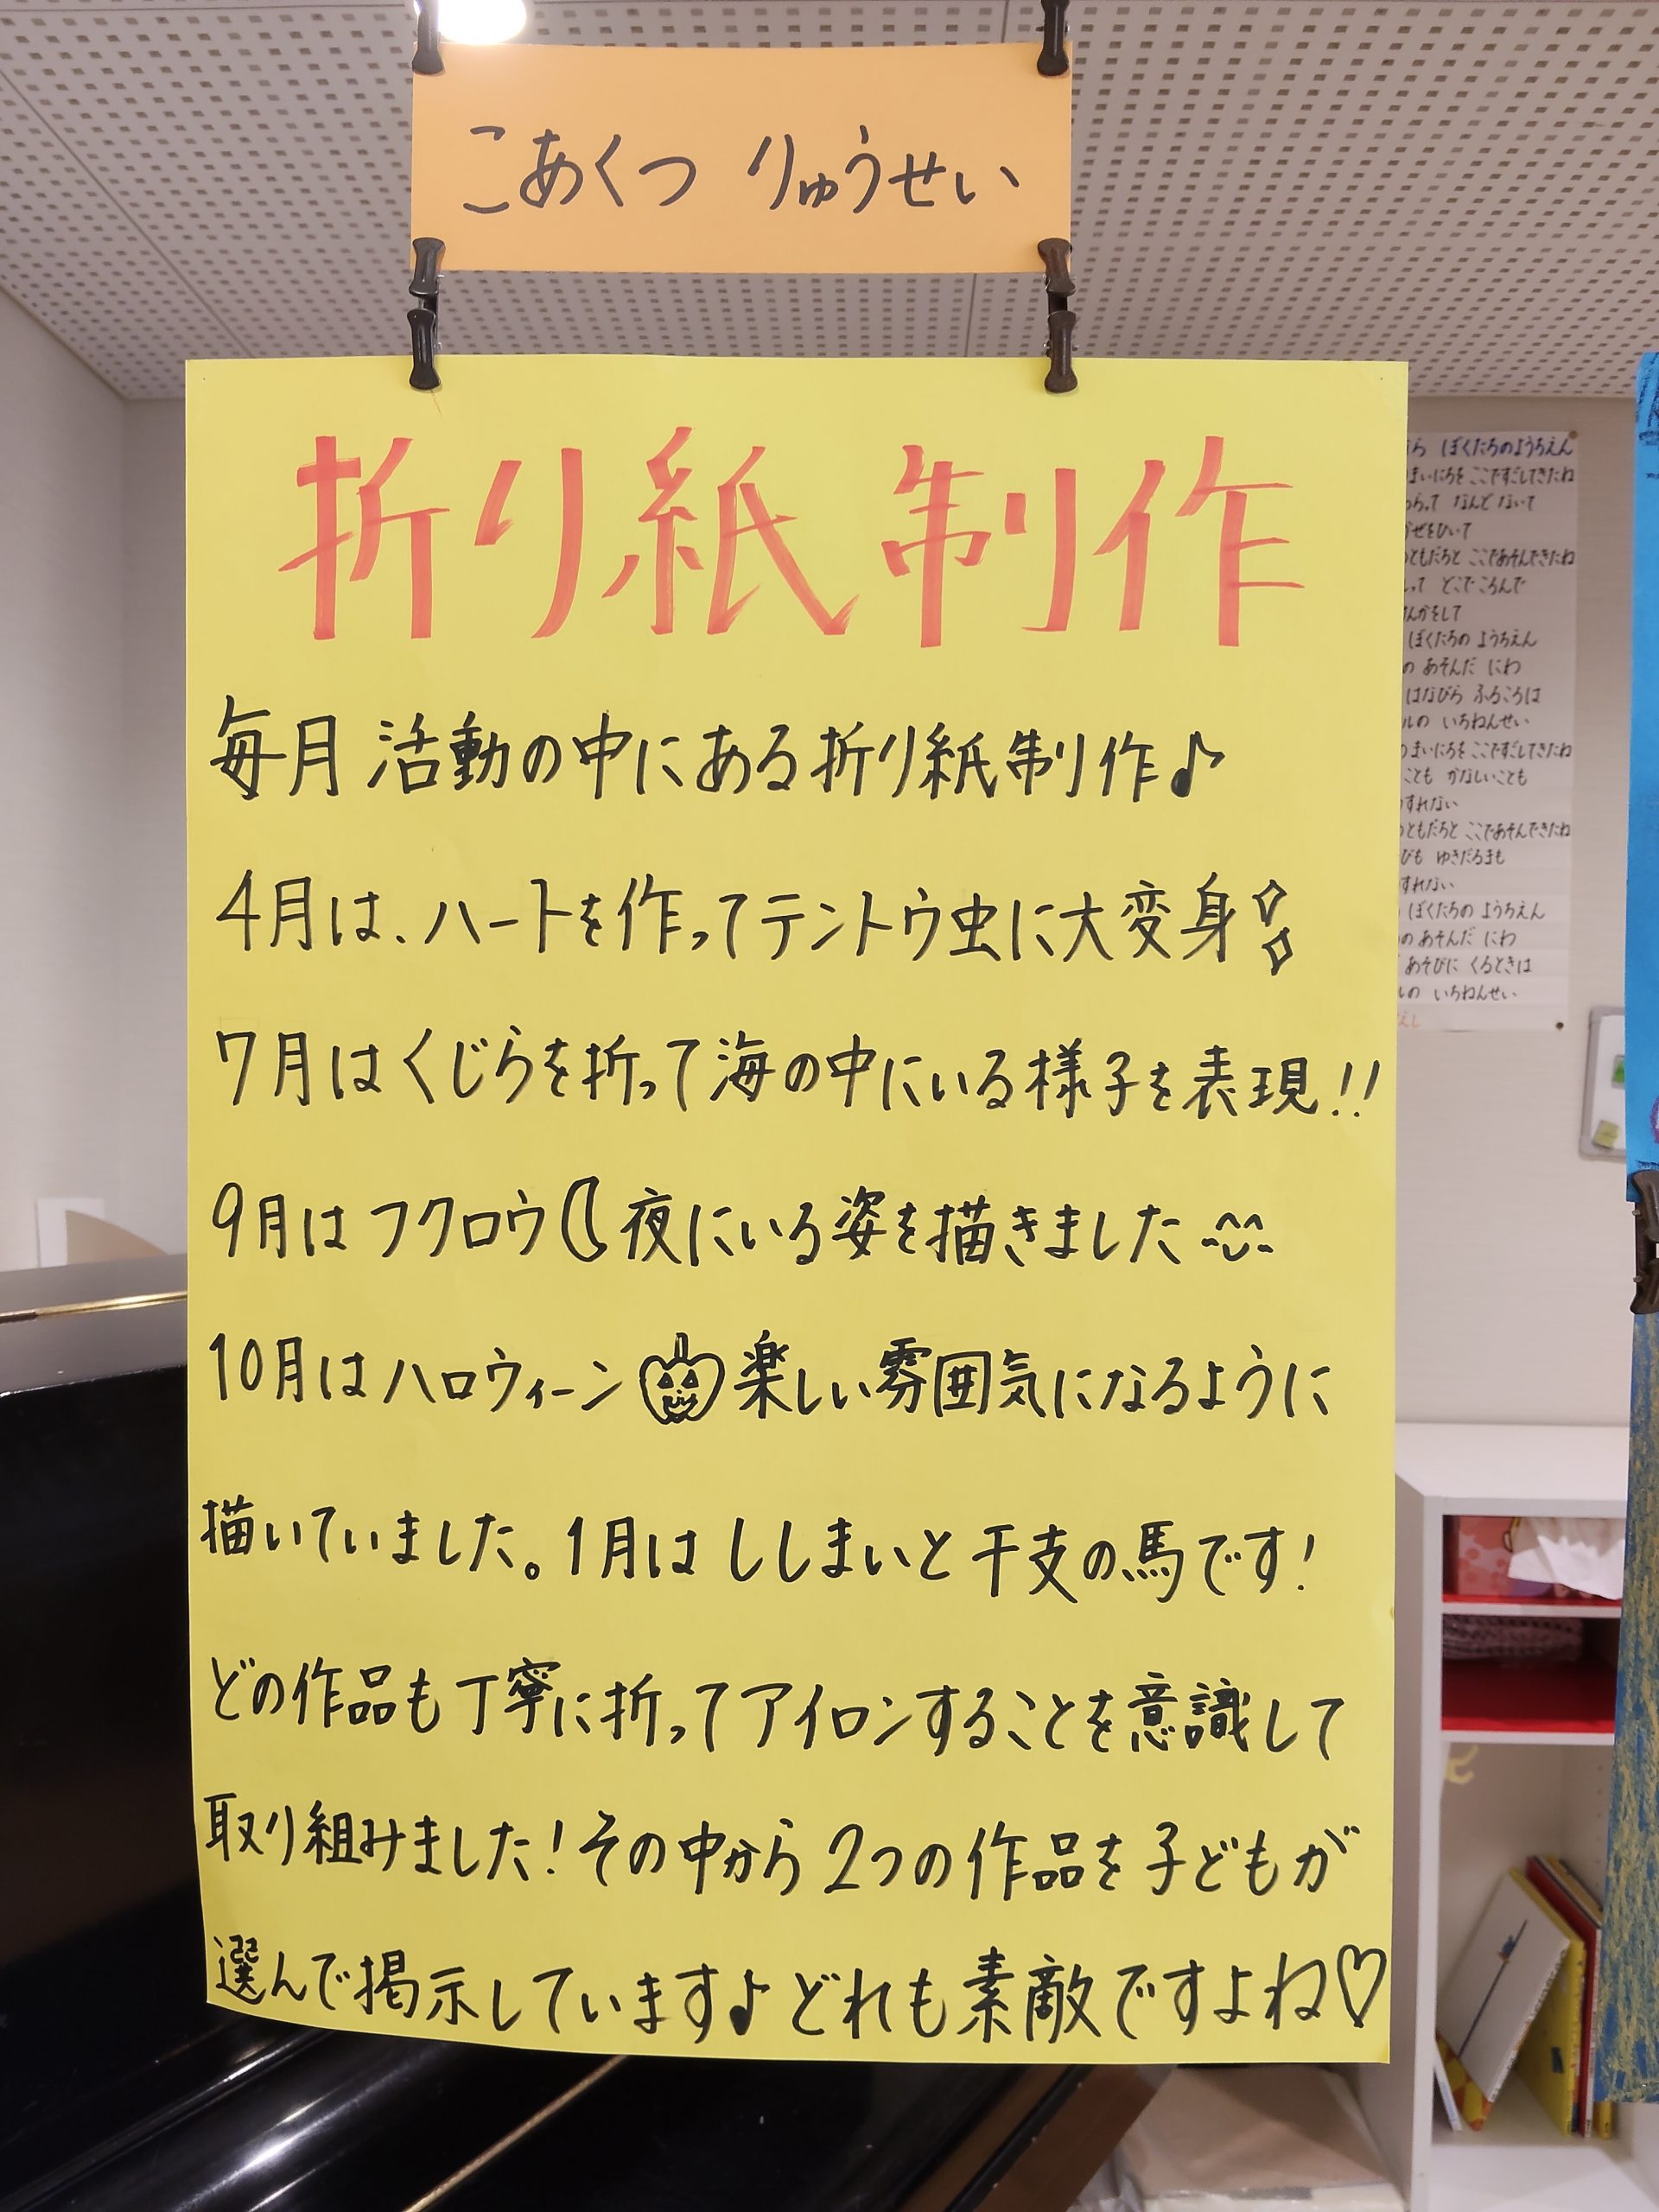 こあくつ りゅうせい
折り紙制作
毎月 活動の中にある折り紙制作♪
4月は、ハートを作ってテントウ虫に大変身
7月はくじらを折って海の中にいる様子を表現!!
9月はフクロウ 夜にいる姿を描きました
10月はハロウィーン 楽しい雰囲気になるように
描いていました。1月は ししまいと 干支の馬です!
どの作品も丁寧に折ってアイロンすることを意識して
取り組みました!その中から 2つの作品を子どもが
選んで掲示しています♪ どれも素敵ですよね♡
ぼくたちのようちえん
まいにちを ここですごしてきたね
なんど ないて
かぜをひいて
ともだちと ここであそんできたね
どこで ころんで
けんかをして
ぼくたちの ようちえん
あそんだ にわ
はなびら ふるころは
いちねんせい
まいにちを ここですごしてきたね
ことも かなしいことも
すれない
ともだちと ここであそんできたね
びも ゆきだるまも
すれない
ぼくたちの ようちえん
のあそんだ にわ
あそびに くるときは
いちねんせい